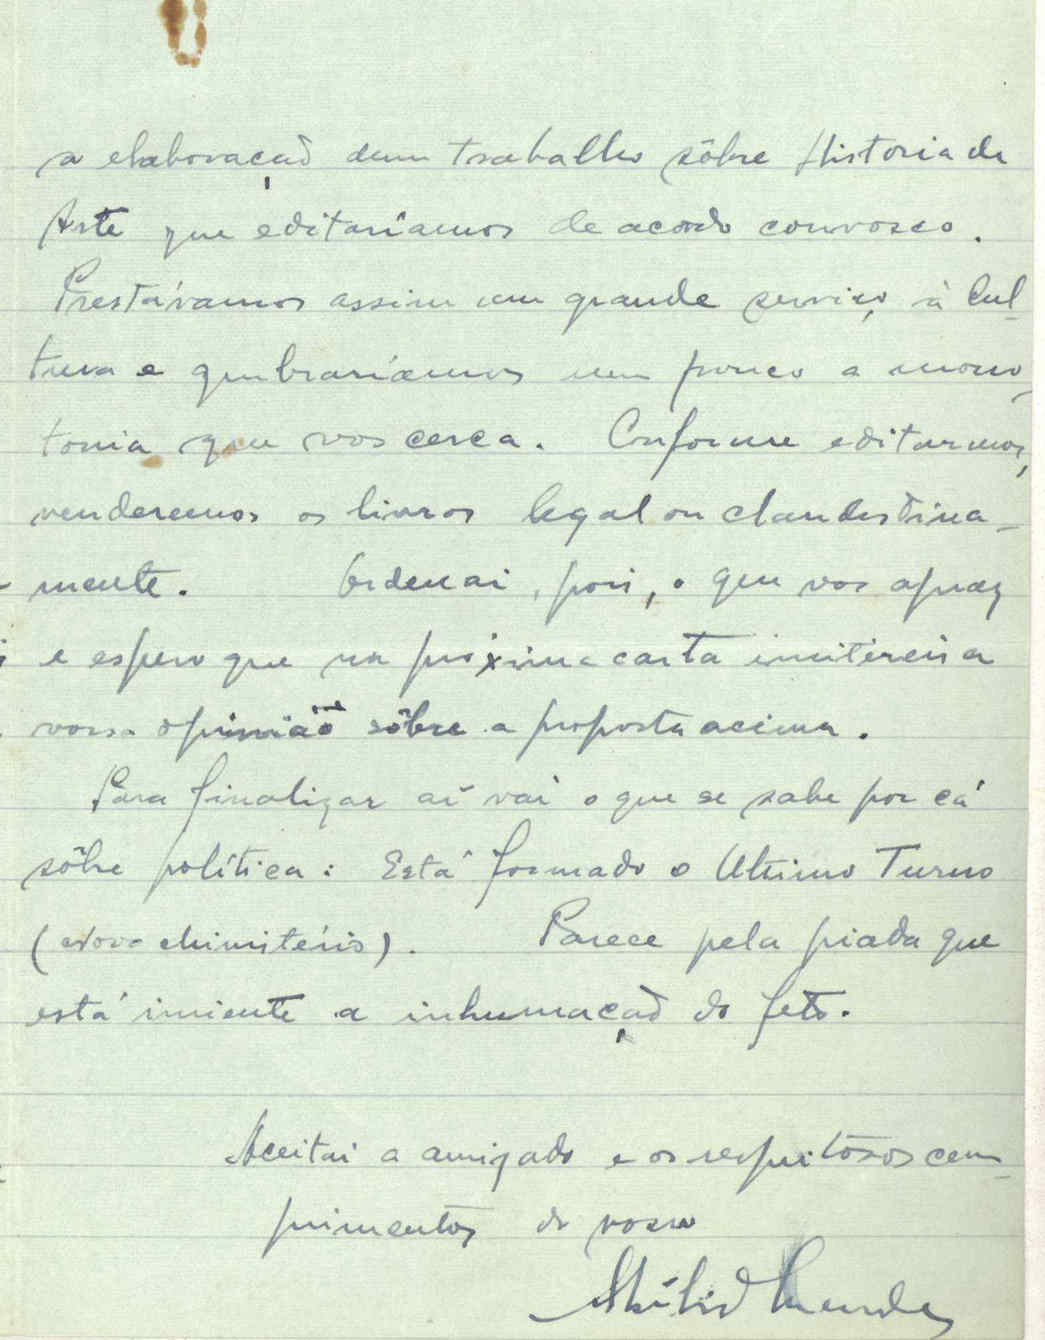 a elaboração dum trabalho sôbre Historia da
Arte que editaríamos de acordo convosco.
Prestávamos assim um grande serviço à Cul-
tura e quebraríamos um pouco a mono-
tonia que vos cerca. Conforme editarmos,
venderemos os livros legal ou clandestina-
mente. Ordenai, pois, o que vos apraz
e espero que na próxima carta emitireis a
vossa opinião sôbre a proposta acima.
Para finalizar aí vai o que se sabe por cá
sôbre política: Está formado o Ultimo Turno
(novo chimitério). Parece pela piada que
está iminente a inhumação do feto.
Aceitai a amizade e os respeitosos cum-
primentos do vosso
Mendes